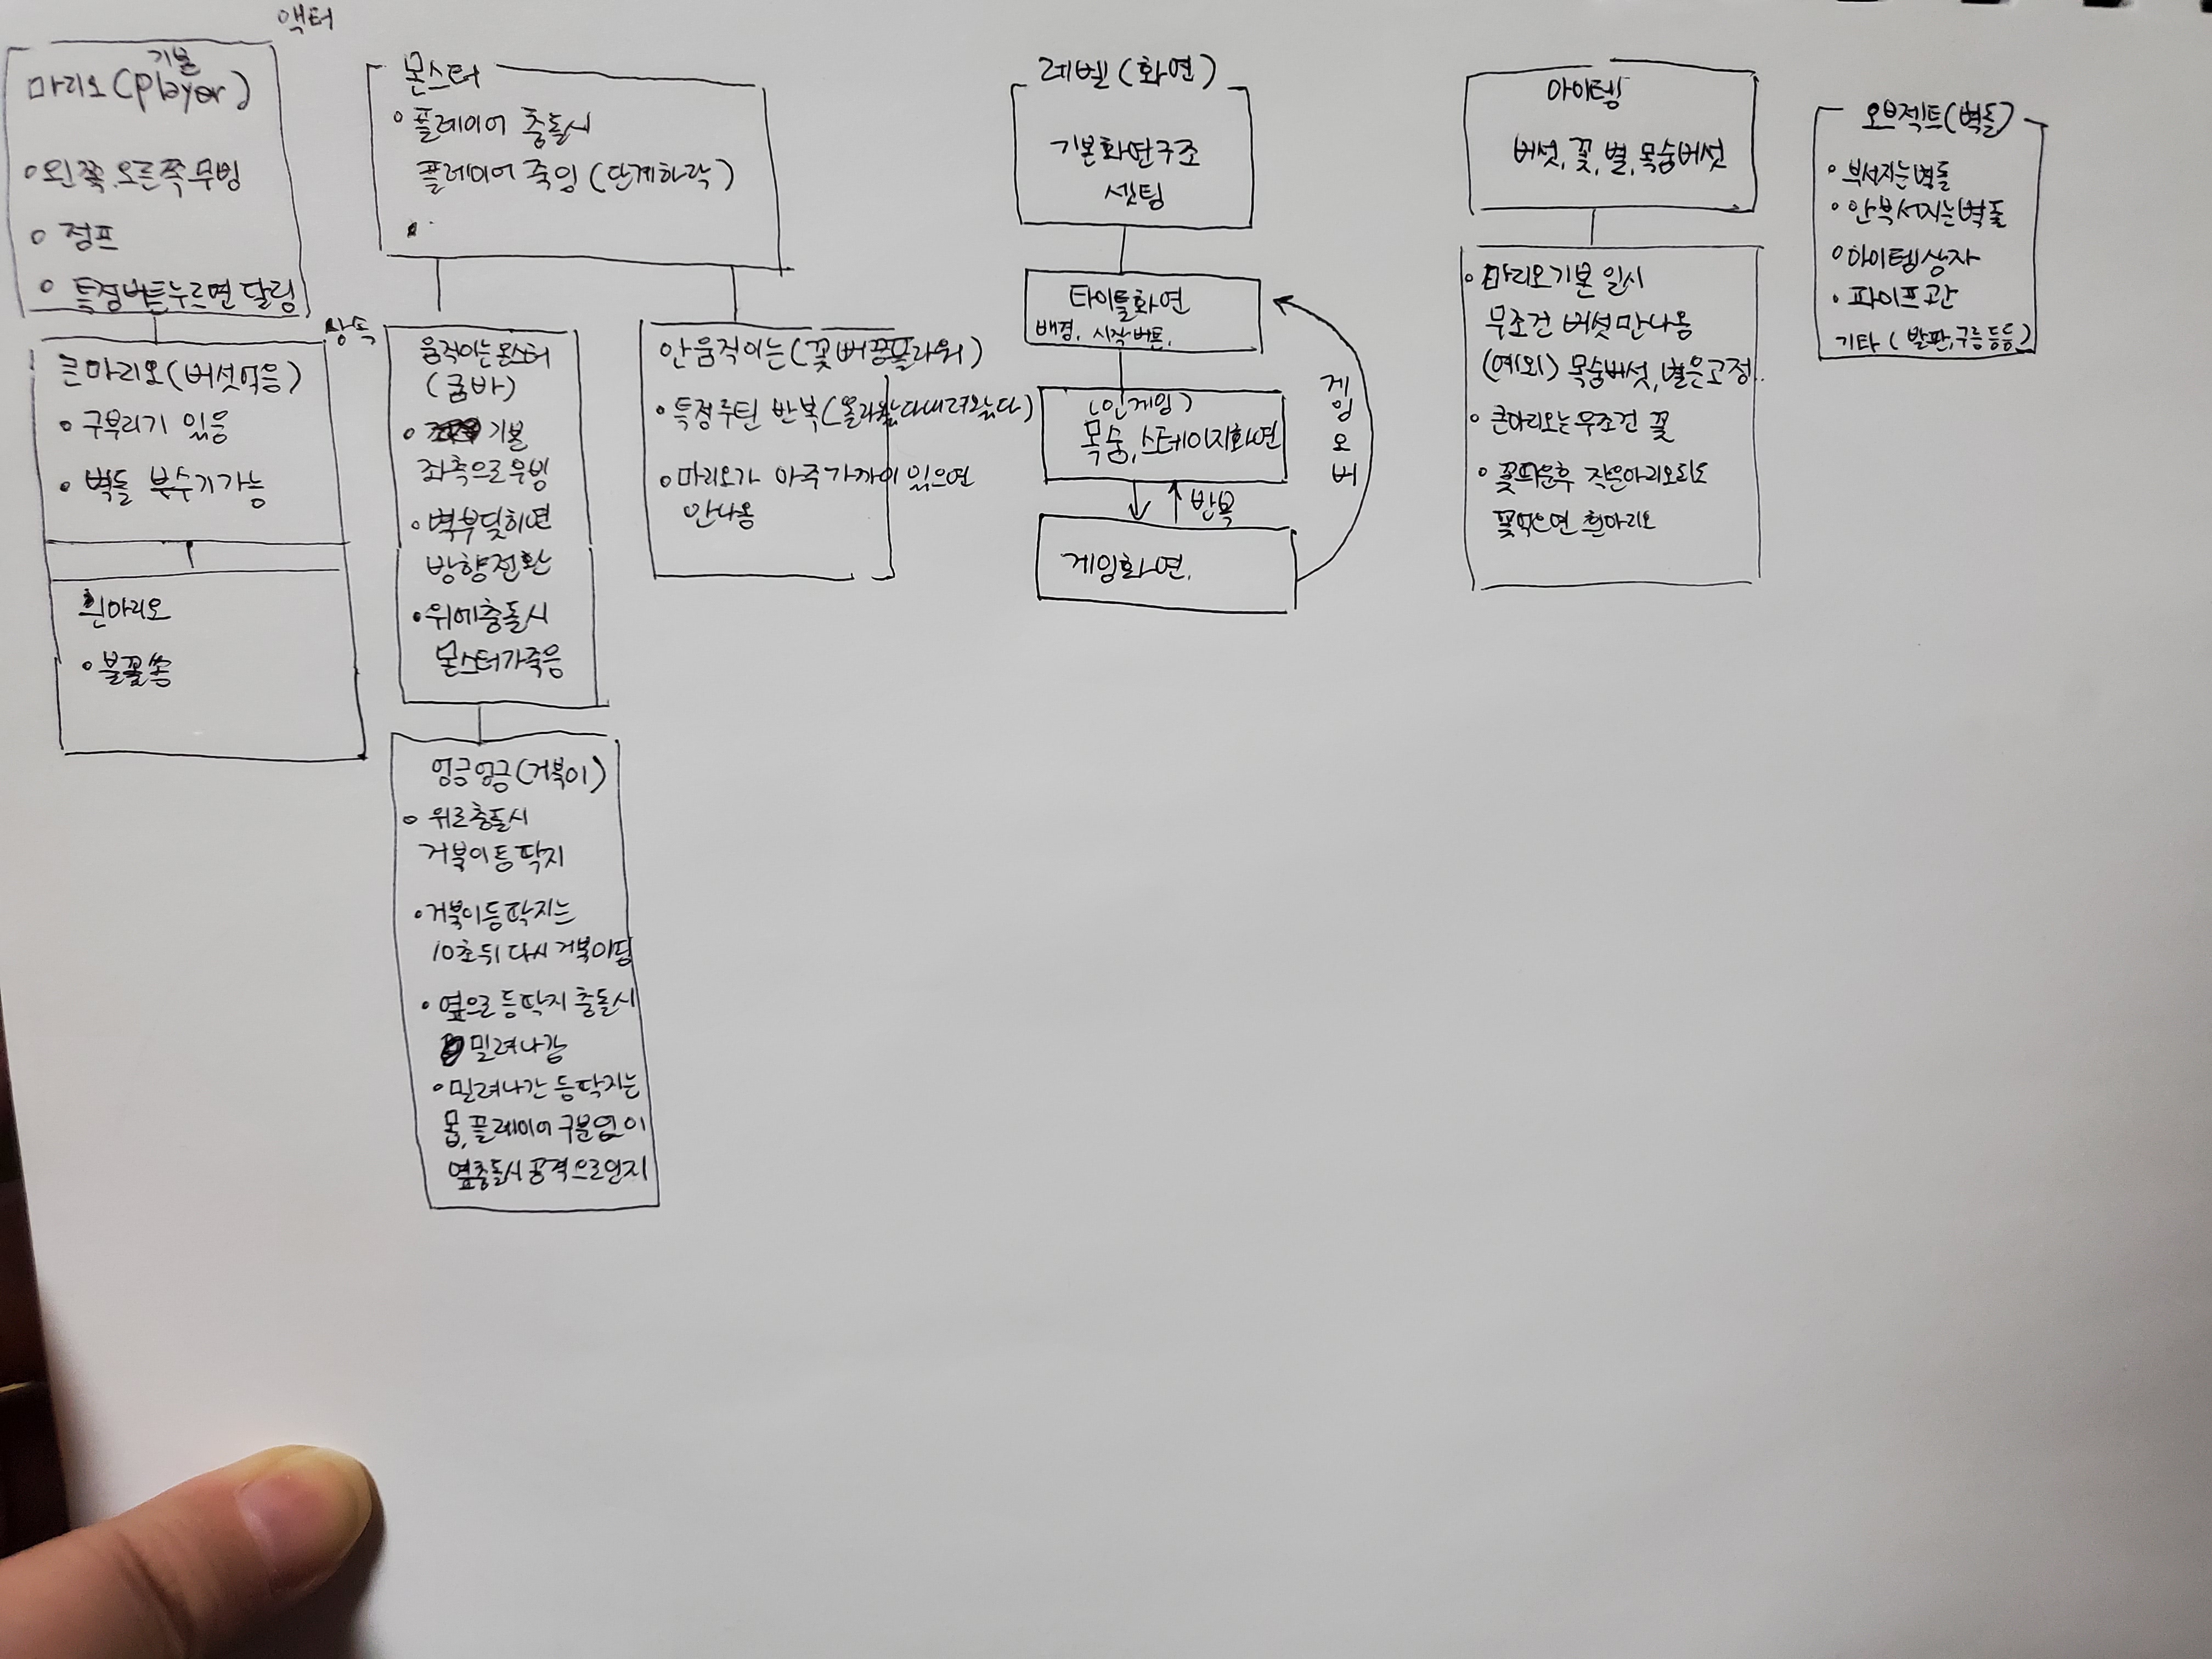 액터
기본
마리오(Player)
○ 왼쪽, 오른쪽 무빙
○ 점프
○ 특정버튼누르면 달림
상속
큰마리오(버섯먹음)
○ 구부리기 있음
• 벽돌 부수기가능
흰마리오
• 불꽃쏨
몬스터
○ 플레이어 충돌시
플레이어 죽임 (단계하락)
움직이는몬스터
(굼바)
○ 기본
좌측으로무빙
• 벽부딪히면
방향전환
• 위에충돌시
몬스터가죽음
엉금엉금(거북이)
○ 위로충돌시
거북이등딱지
• 거북이등딱지는
10초뒤 다시 거북이됨
• 옆으로 등딱지 충돌시
밀려나감
• 밀려나간 등딱지는
몹, 플레이어 구분없이
옆충돌시 공격으로인지
안움직이는(꽃 뻐끔플라워)
• 특정루틴 반복(올라왔다내려왔다)
○ 마리오가 아주가까이 있으면
안나옴
레벨(화면)
기본화면구조
셋팅
타이틀화면
배경, 시작버튼.
(인게임)
목숨, 스테이지화면
반복
게임화면.
게임오버
아이템
버섯, 꽃, 별, 목숨버섯
○ 마리오기본 일시
무조건 버섯만나옴
(예외) 목숨버섯, 별은고정.
• 큰마리오는무조건 꽃
• 꽃띄운후 작은마리오라도
꽃먹으면 흰마리오
오브젝트(벽돌)
• 부서지는벽돌
• 안부서지는벽돌
○ 아이템상자
• 파이프관
기타 (발판,구름등등)